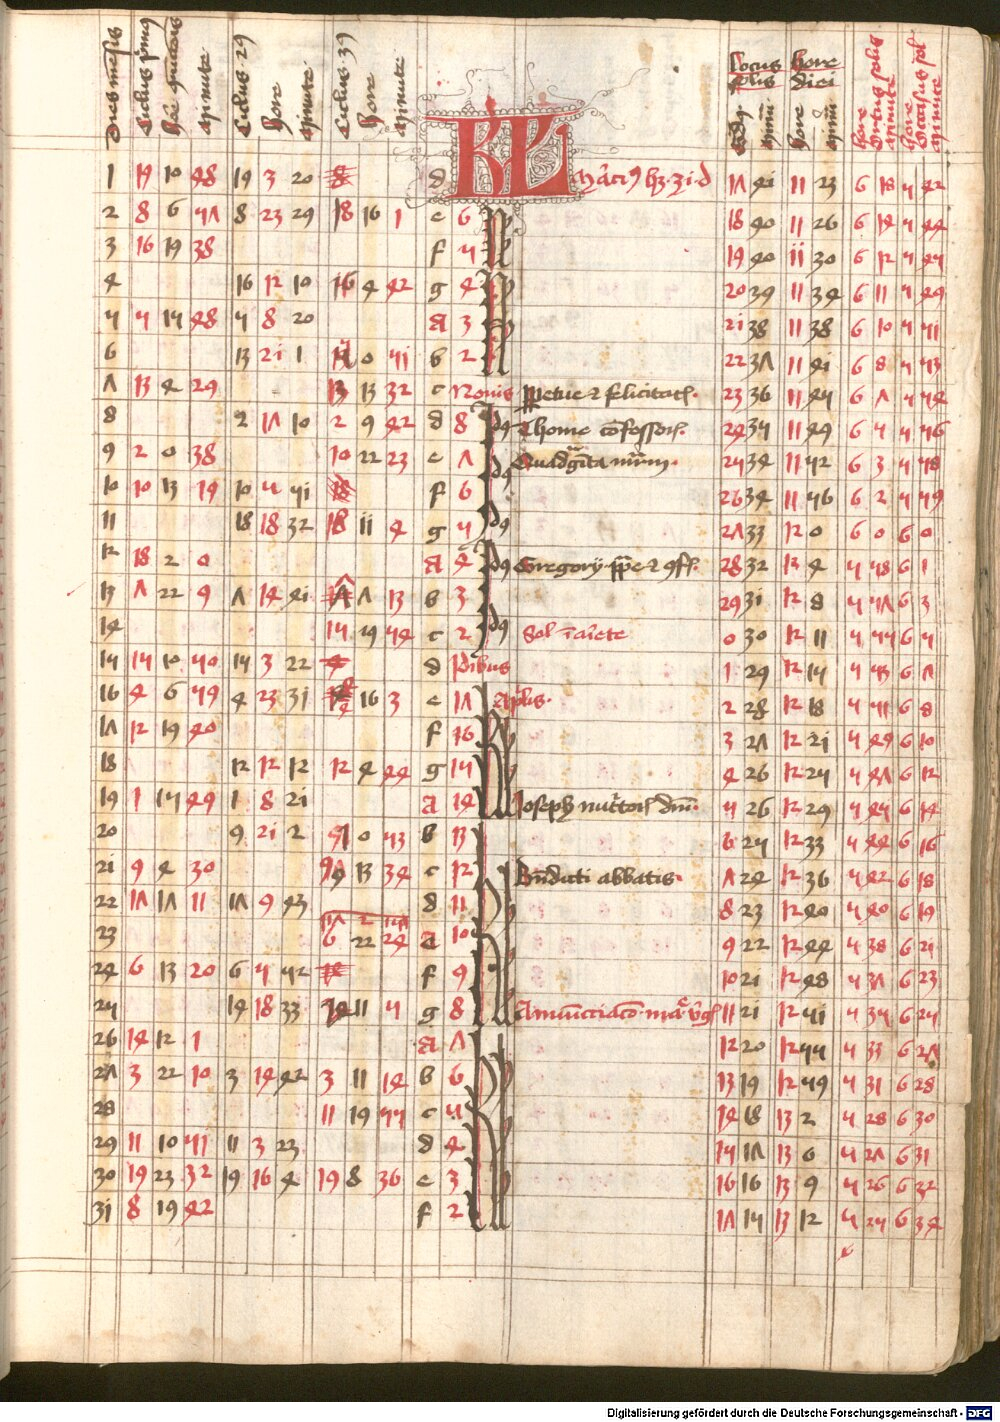 Dies mensis Ciclus primus hore minute Ciclus 29 hore minute Ciclus 39 hore minute Locus solis hore diei hore Ortus solis minute hore Occasus sol minute
1 19 10 48 19 3 20 d KL Marcius hz 31 d 17 41 11 23 6 18 5 42
2 8 6 57 8 23 29 18 16 1 e 6 18 40 11 26 6 14 5 44
3 16 19 38 f 5 19 40 11 30 6 12 5 47
4 16 12 10 16 4 42 g 4 20 39 11 34 6 11 5 49
5 5 15 48 5 8 20 A 3 21 38 11 38 6 10 5 51
6 13 21 1 0 51 b 2 22 37 11 41 6 8 5 53
7 13 4 29 13 13 32 c Nonis Ppetue 2 felicitatis 23 36 11 45 6 7 5 54
8 2 17 10 2 9 42 d 8 Thome cofessoris 24 35 11 49 6 5 5 56
9 2 0 38 10 22 23 e 7 Quadgita 25 34 11 52 6 3 5 58
10 10 13 19 10 5 51 f 6 26 34 11 56 6 2 5 59
11 18 18 32 18 11 4 g 5 27 33 12 0 6 0 6 0
12 18 2 0 A 4 Gregorij ppe 2 9f 28 32 12 4 5 58 6 1
13 7 22 9 7 14 41 7 13 b 3 29 31 12 8 5 57 6 3
14 15 19 54 c 2 Sol i ariete 0 30 12 11 5 55 6 5
15 15 10 50 15 3 22 d Idibus 1 29 12 15 5 53 6 7
16 4 6 59 4 23 31 16 3 e 17 Aplis 2 28 12 18 5 51 6 8
17 12 19 40 f 16 3 27 12 21 5 49 6 10
18 12 12 12 12 4 44 g 15 4 26 12 25 5 47 6 12
19 1 15 49 1 8 21 A 14 Joseph nutritoris dni 5 26 12 29 5 45 6 14
20 9 21 2 0 53 b 13 6 25 12 33 5 44 6 16
21 9 4 30 9 13 34 c 12 Bndicti abbatis 7 24 12 36 5 42 6 18
22 17 17 11 17 9 43 d 11 8 23 12 40 5 40 6 19
23 6 22 24 e 10 9 22 12 44 5 38 6 21
24 6 13 20 6 5 52 f 9 10 21 12 48 5 37 6 23
25 14 18 33 11 5 g 8 Annucciaco 11 21 12 51 5 35 6 25
26 14 12 1 A 7 12 20 12 55 5 33 6 27
27 3 22 10 3 14 42 3 11 14 b 6 13 19 12 59 5 31 6 28
28 11 19 55 c 5 14 18 13 2 5 28 6 30
29 11 10 51 11 3 23 d 4 15 17 13 6 5 27 6 31
30 19 23 32 19 16 4 19 8 36 e 3 16 16 13 9 5 26 6 32
31 8 19 42 f 2 17 15 13 12 5 25 6 34
Digitalisierung gefördert durch die Deutsche Forschungsgemeinschaft - DFG